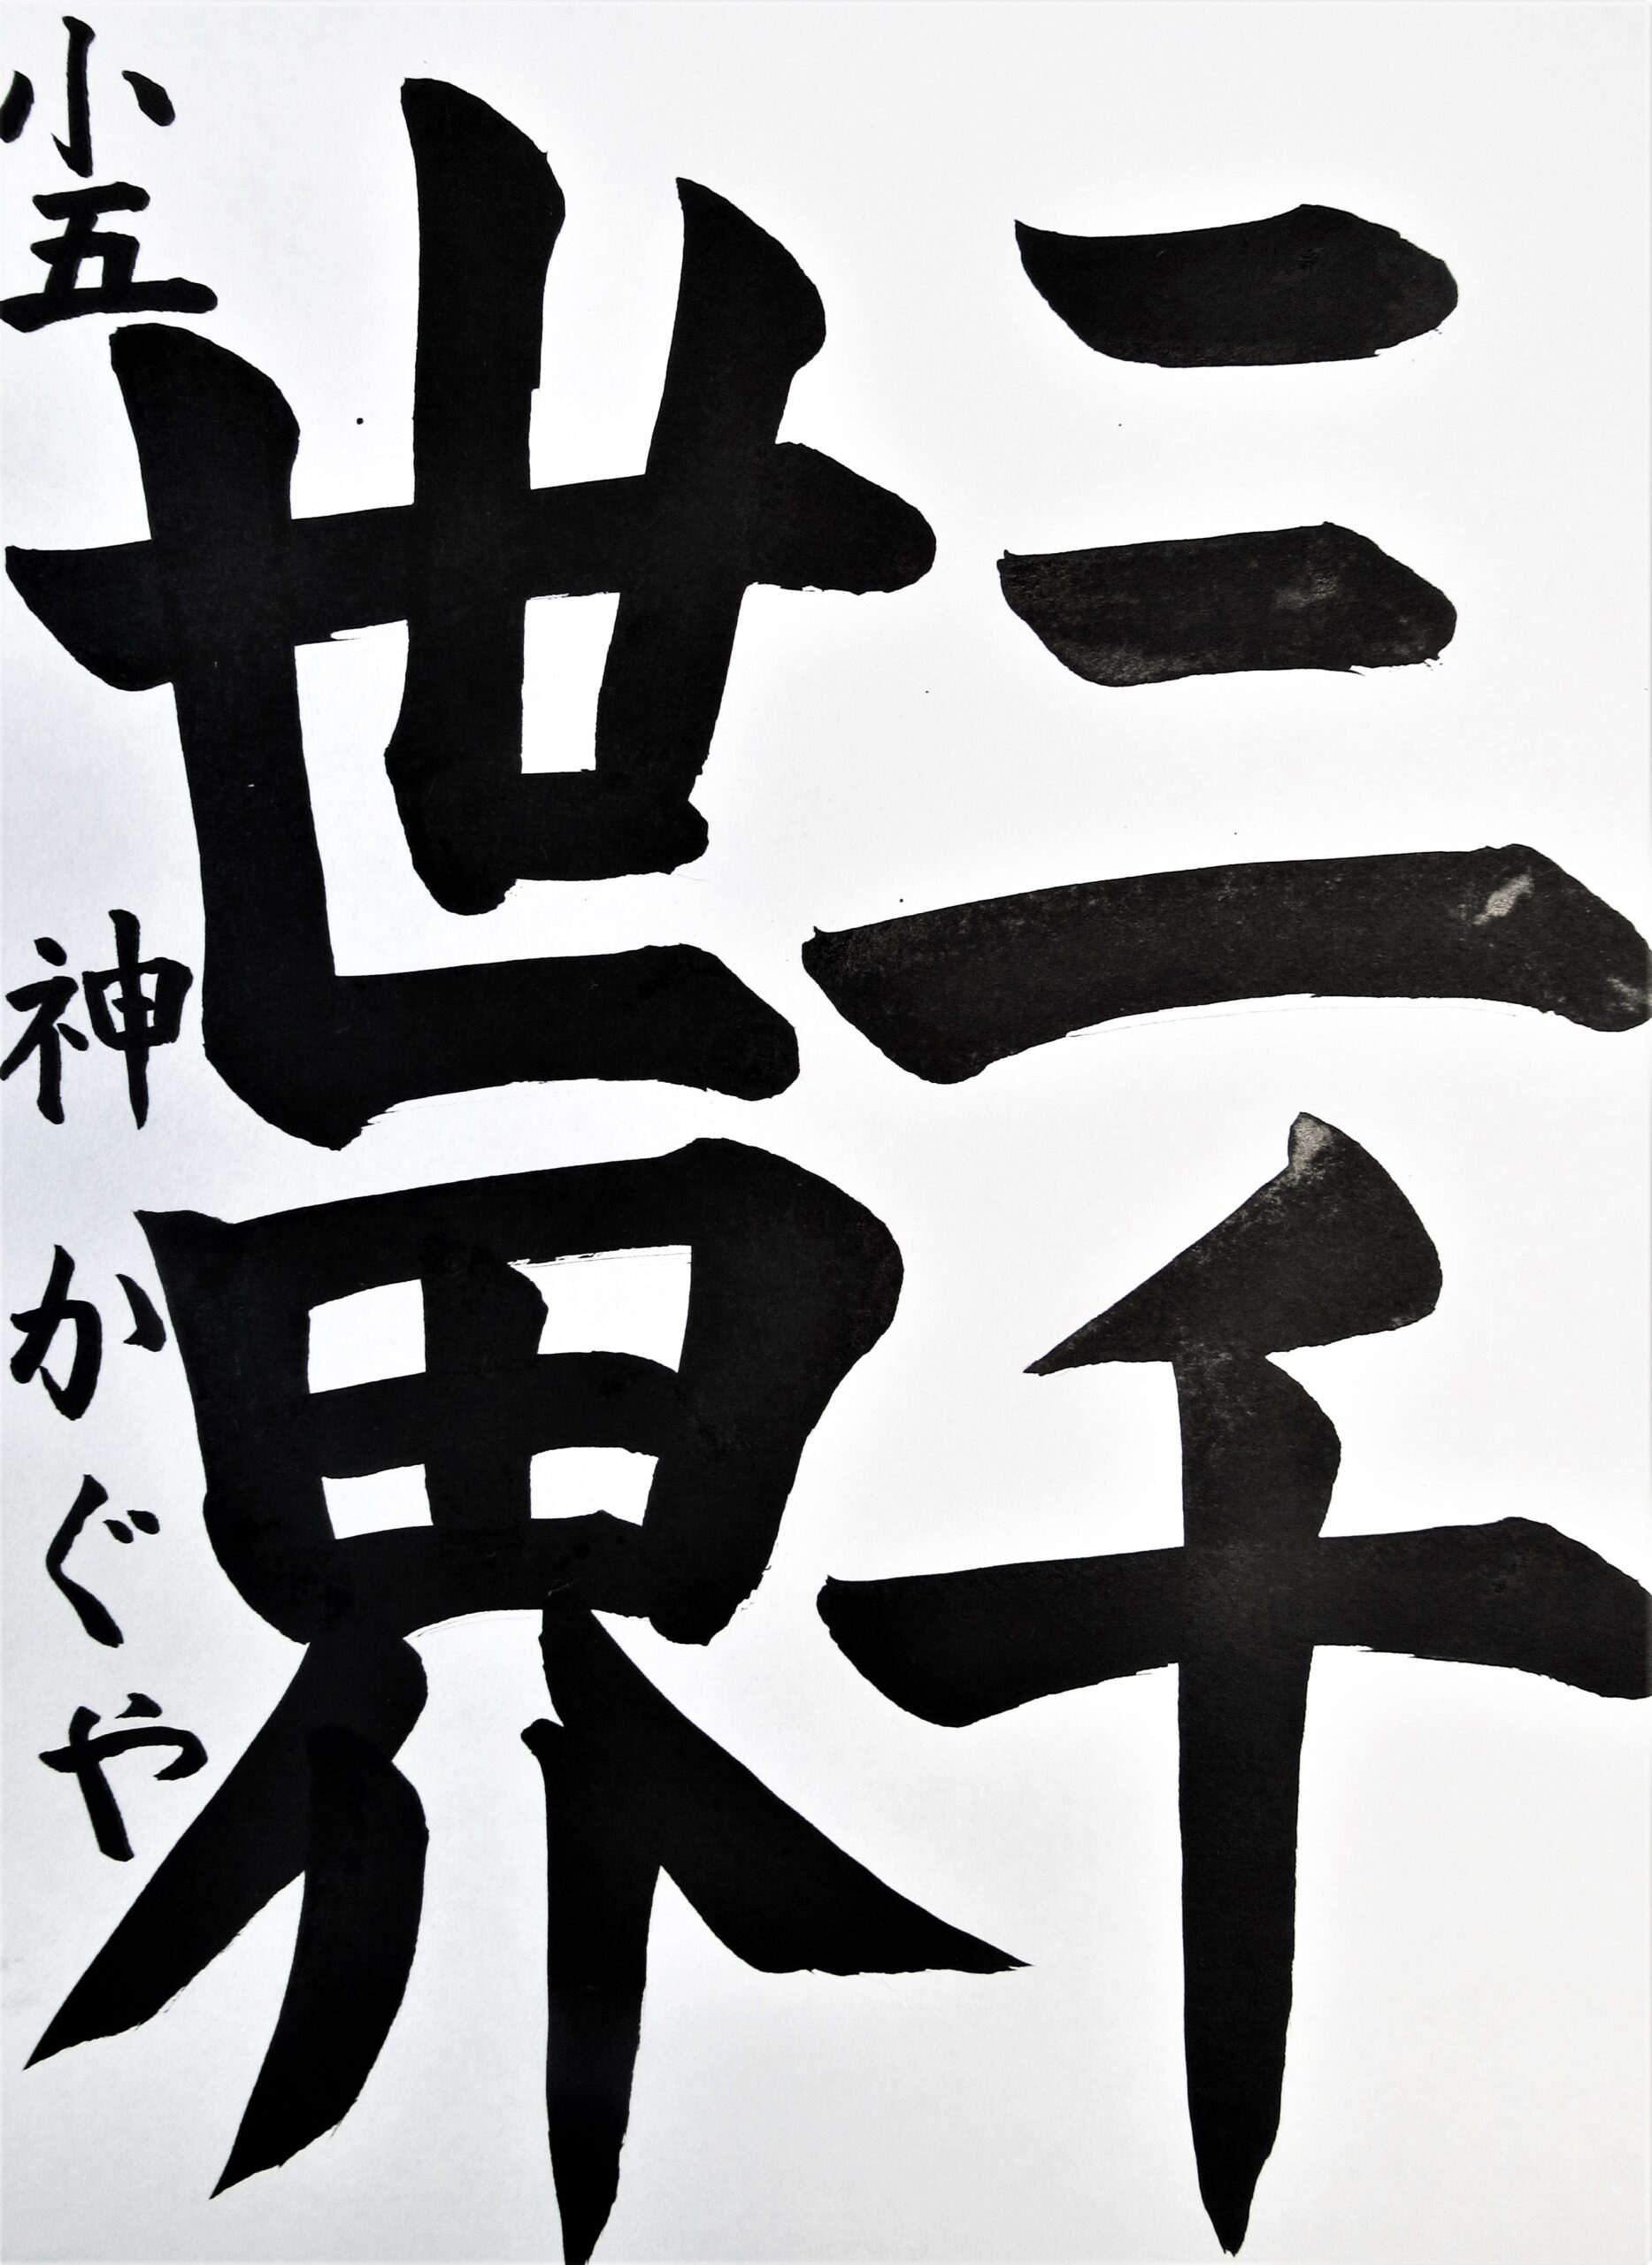 三千
世界
小五 神 かぐや